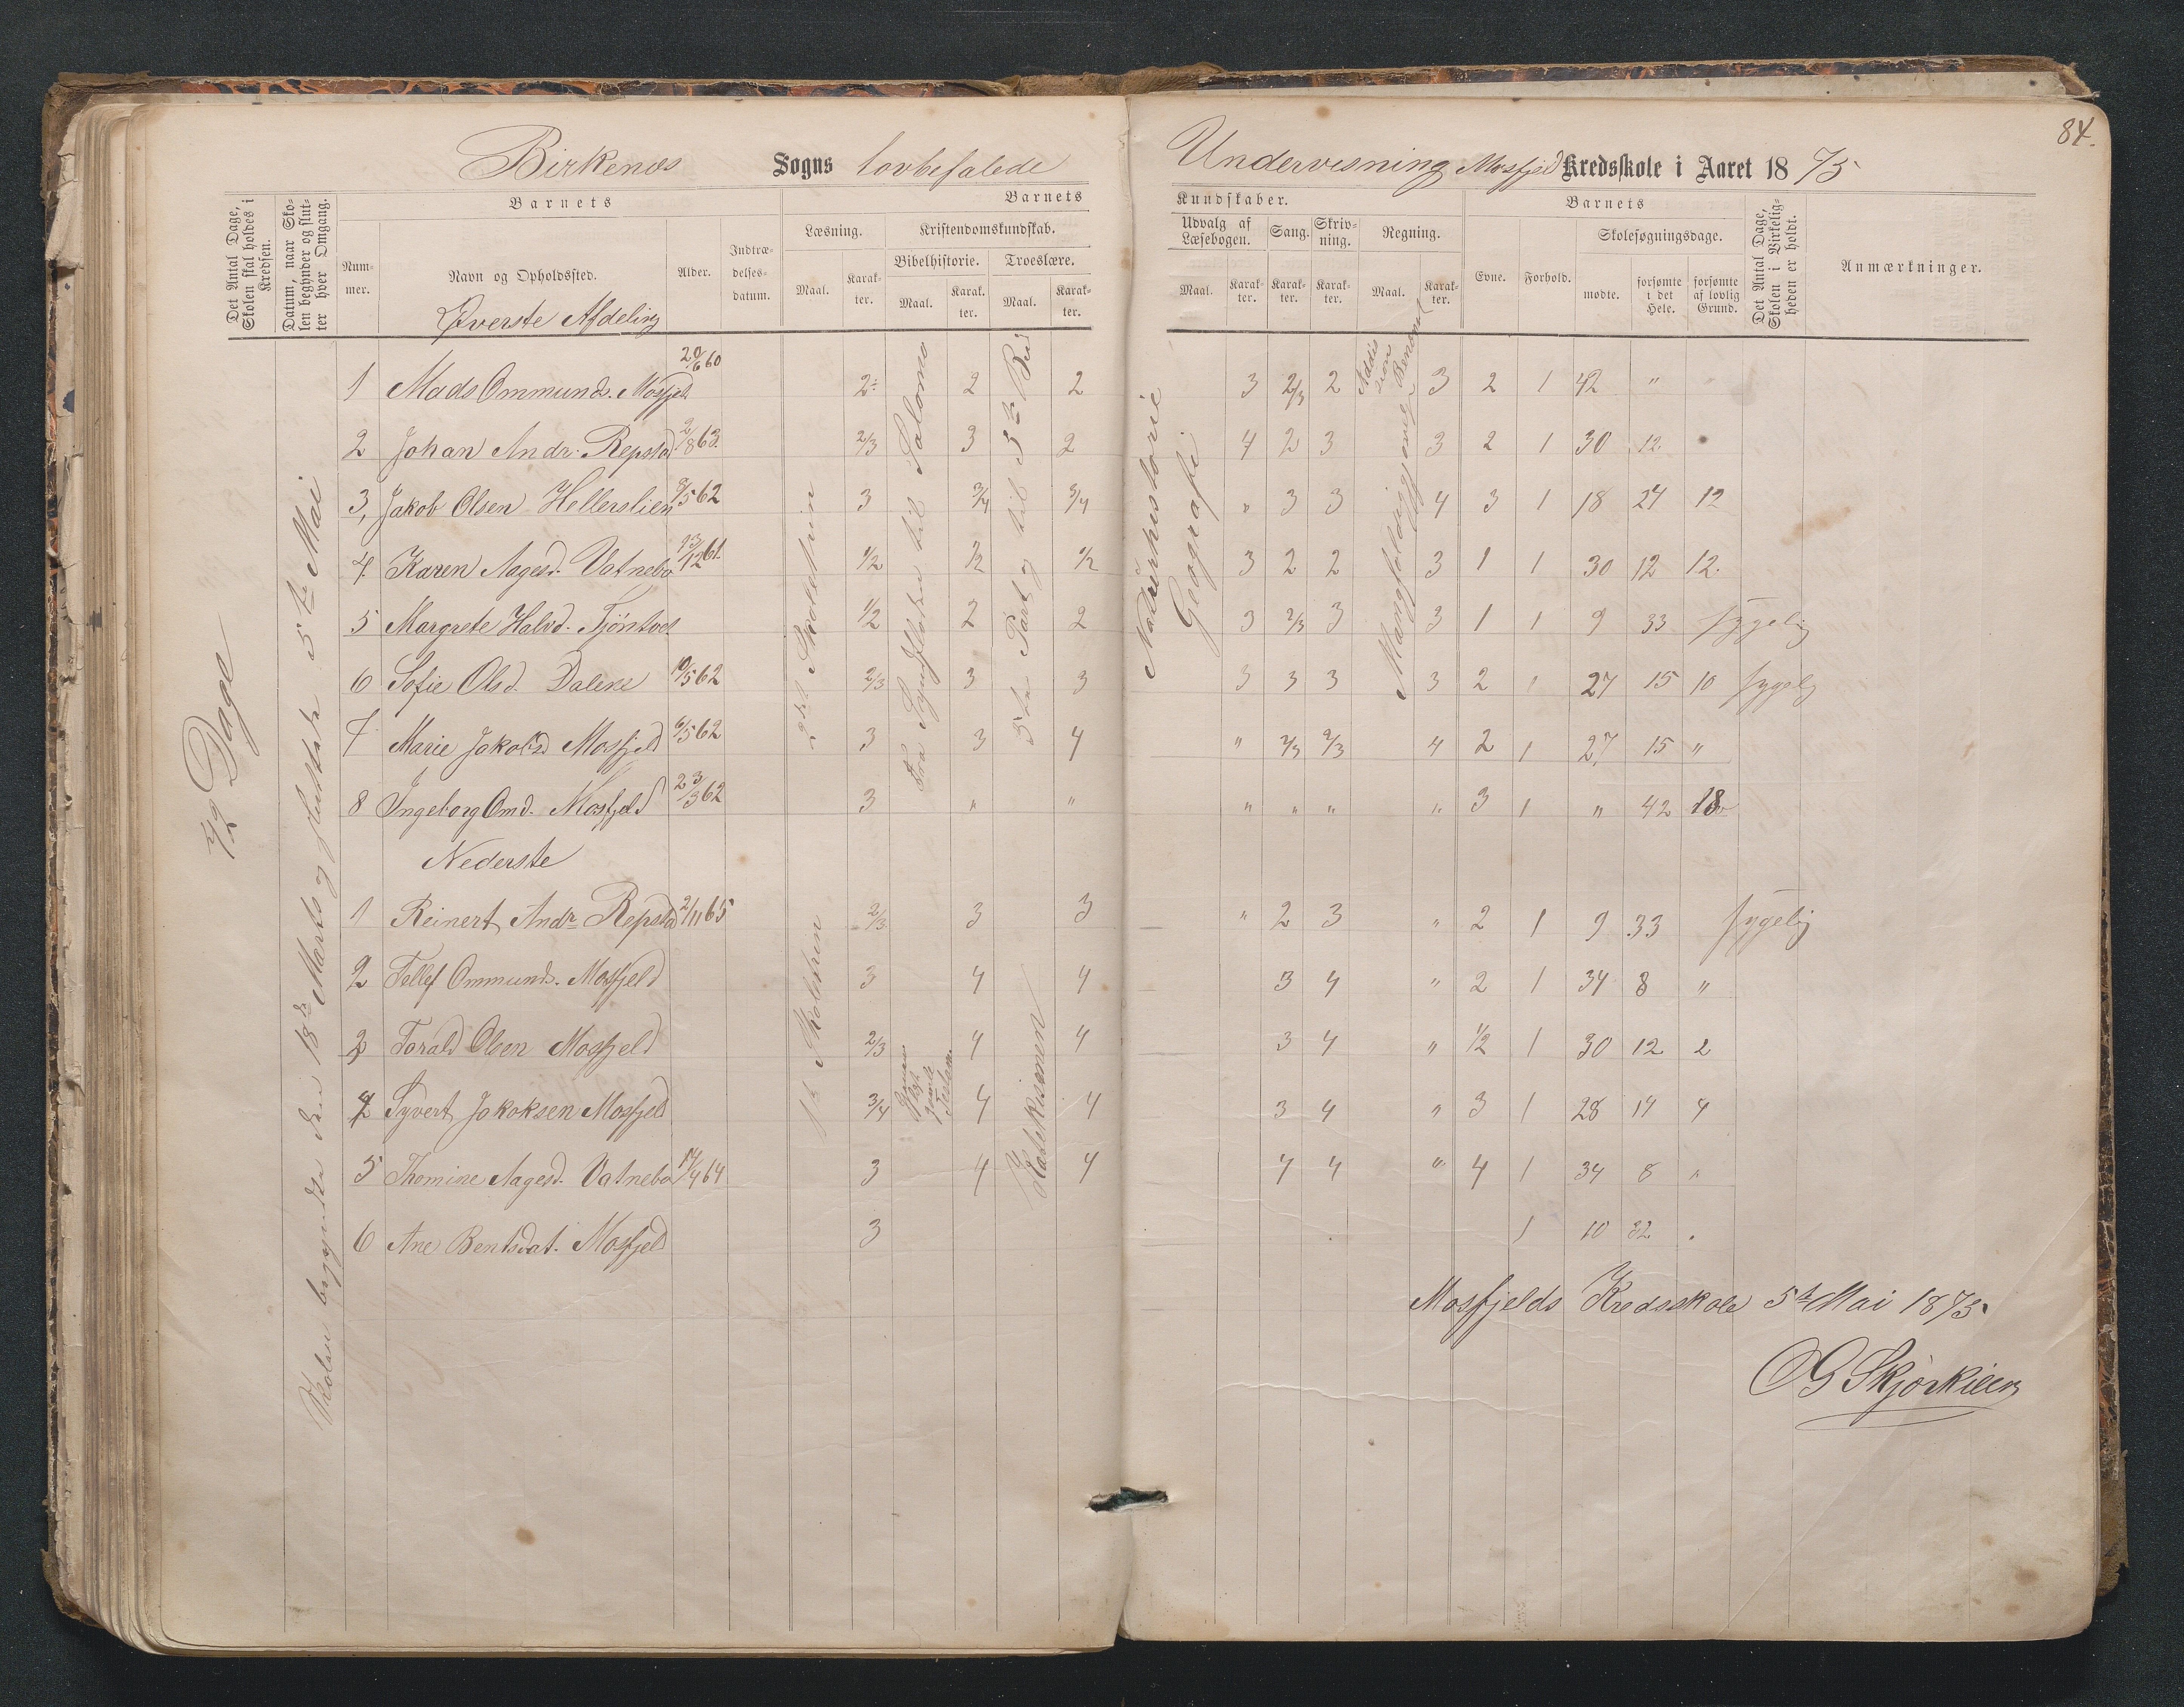 84.
Birkenæs Sogns lovbefalede Undervisning Mosfjeld Kredsskole i Aaret 1875
Det Antal Dage, Skolen skal holdes i Kredsen.
Datum, naar Skolen begynder og slutter hver Omgang.
Barnets
Nummer.
Navn og Opholdssted.
Alder.
Indtrædelsesdatum.
Barnets Kundskaber.
Læsning.
Maal.
Karakter.
Kristendomskundskab.
Bibelhistorie.
Maal.
Karakter.
Troeslære.
Maal.
Karakter.
Udvalg af Læsebogen.
Maal.
Karakter.
Sang.
Karakter.
Skrivning.
Karakter.
Regning.
Maal.
Karakter.
Barnets
Evne.
Forhold.
Skolesøgningsdage.
mødte.
forsømte i det Hele.
forsømte af lovlig Grund.
Det Antal Dage, Skolen i Virkeligheden er holdt.
Anmærkninger.
42 Dage
Skolen begyndte den 18de Marts og sluttede 5te Mai
Øverste Afdeling
2det Skoletrin
Fra Syndfloden til Salomo
5te Part og til 3die Bud
Naturhistorie
Geografi
Addision
Mangfoldig ygjorelse Benævnt
1 Mads Ommunds. Mosfjeld 20/6 60 2÷ 2 2 3 2/3 2 3 2 1 42 " "
2 Johan Andr. Repstad 2/8 63. 2/3 3 2 4 2 3 3 2 1 30 12.
3, Jakob Olsen Hellerslien 8/5 62 3 3/4 3/4 " 3 3 4 3 1 18 24 12
4. Karen Aagesd. Vatnebo 13/12 61. 1/2 1/2 1/2 3 2 2 3 1 1 30 12 12.
5 Margrete Halvd. Tjöntvet 1/2 2 2 3 2/3 3 3 1 1 9 33 sygelig
6 Sofie Olsd. Dalene 10/5 62 2/3 3 3 3 3 3 3 2 1 27 15 10 sygelig
7 Marie Jakobsd Mosfjeld 6/5 62 3 3 4 " 2/3 2/3 4 2 1 27 15 "
8 Ingeborg Omd. Mosfjeld 23/3 62 3 " " " " " " 3 1 " 42 18
Nederste
1st Skoletrin
Katekismen
1 Reinert Andr Repstad 2/11 65 2/3 3 3 " 2 3 " 2 1 9 33 sygelig
2 Tellef Ommunds. Mosfjeld 3 4 4 3 4 " 2 1 34 8 "
3 Torald Olsen Mosfjeld 2/3 4 4 3 4 " 1/2 1 30 12 2
4 Syvert Jakobsen Mosfjeld 3/4 4 4 3 4 " 3 1 28 14 4
5 Thomine Aagesd. Vatnebo 14/4 64 3 4 4 4 4 " 4 1 34 8 "
6 Ane Bentsdat. Mosfjeld 3 1 10 32 .
Mosfjelds Kredsskole 5te Mai 1875.
OG Skjørkilen